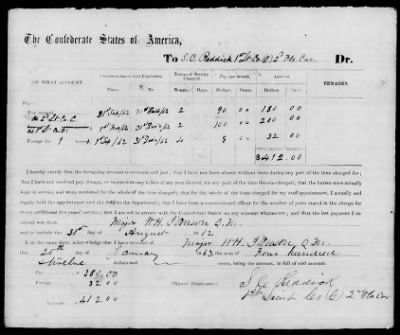 The Confederate States of America,
To S. C. Reddick 1st Lt Co (C) 2d Fla Cav Dr.
ON WHAT ACCOUNT. Commencement and Expiration. Term of Service Charged. Pay per month. Amount. REMARKS.
From To Months. Days. Dolls. Cts. Dollars. Cents.
Pay
as 2d Lt Co C. 31st Dec/62 2 90 00 180 00
as 1st Lt 31st Dec/62 2 100 00 200 00
Forage for 1 1st Sept/62 31st Dec/62 4 8 00 32 00
$412.00
I hereby certify that the foregoing account is accurate and just; that I have not been absent without leave during any part of the time charged for;
that I have not received pay, forage, or received money in lieu of any part thereof, for any part of the time therein charged; that the horses were actually
kept in service and were mustered for the whole of the time charged; that for the whole of the time charged for my staff appointment, I actually and
legally held the appointment and did duty in the department; that I have been a commissioned officer for the number of years stated in the charge for
every additional five years' service; that I am not in arrears with the Confederate States on any account whatsoever; and that the last payment I re-
ceived was from Major W.H.
and to include the 31st day of August 1862
I, at the same time, acknowledge that I have received of Major W.H. Q.M.
this 20th day of January 1863 the sum of Four hundred
& Twelve dollars and cents, being the amount, in full of said account.
Pay 380.00
Forage 32 00
Amount 412 00
(Signed Duplicates.)
S. C. Reddick
1st Lieut Co (C) 2d Fla Cav